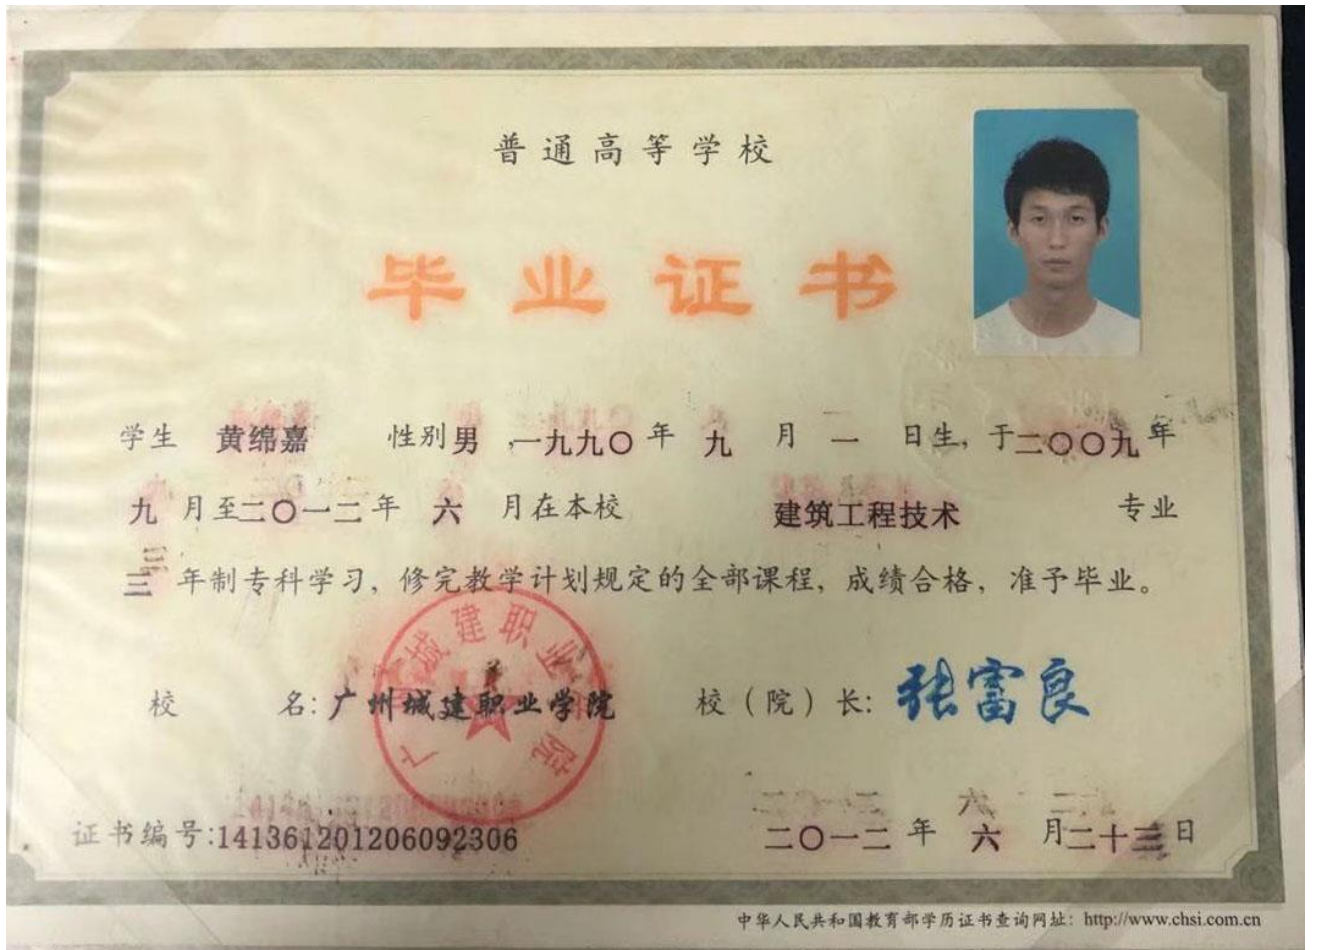 普通高等学校
毕业证书
学生 黄绵嘉 性别男,一九九〇年 九 月 一 日生, 于二〇〇九年
九 月至二〇一二年 六 月在本校 建筑工程技术 专业
三 年制专科学习, 修完教学计划规定的全部课程, 成绩合格, 准予毕业。
广州城建职业学院
校 名: 广州城建职业学院 校（院）长: 张富良
证书编号:141361201206092306 二〇一二年 六 月二十三日
中华人民共和国教育部学历证书查询网址: http://www.chsi.com.cn